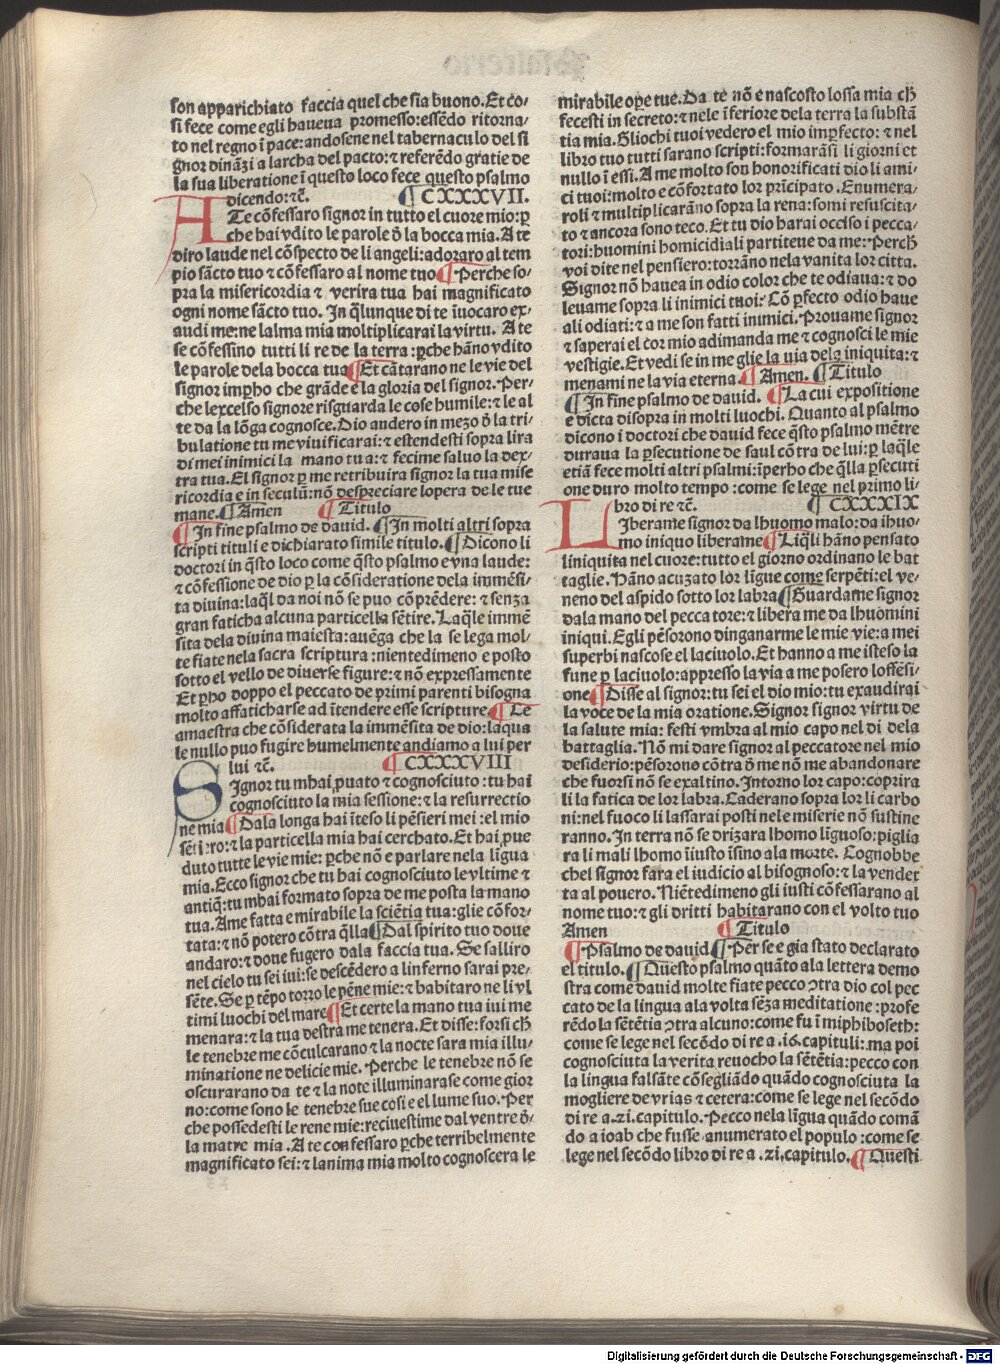 son apparichiato faccia quel che sia buono. Et co/
si fece come egli haueua promesso: essēdo ritorna/
to nel regno ī pace: andosene nel tabernaculo del si
gnor dināzi a larcha del pacto: ⁊ referēdo gratie de
la sua liberatione ī questo loco fece questo psalmo
dicendo: ⁊c̄. ¶ CXXXVII.
A Te cōfessaro signor in tutto el cuore mio: ꝑ
che hai vdito le parole d̄ la bocca mia. A te
diro laude nel cōspecto de li angeli: adoraro al tem
pio sācto tuo ⁊ cōfessaro al nome tuo ¶ Perche so/
pra la misericordia ⁊ verita tua hai magnificato
ogni nome sācto tuo. In q̄lunque di te īuocaro ex/
audi me: ne lalma mia moltiplicarai la virtu. A te
se cōfessino tutti li re de la terra: ꝑche hāno vdito
le parole dela bocca tua ¶ Et cātarano ne le vie del
signor imꝑho che grāde e la gloria del signor. Per/
che lexcelso signore risguarda le cose humile: ⁊ le al
te da la lōga cognosce. Dio andero in mezo d̄ la tri/
bulatione tu me viuificarai: ⁊ estendesti sopra lira
di mei inimici la mano tua: ⁊ fecime saluo la dex/
tra tua. El signor ꝑ me retribuira signor la tua mise
ricordia e in seculū: nō despreciare lopera de le tue
mane. ¶ Amen ¶ Titulo
¶ In fine psalmo de dauid. ¶ In molti altri sopra
scripti tituli e dichiarato simile titulo. ¶ Dicono li
doctori in q̄sto loco come q̄sto psalmo e vna laude:
⁊ cōfessione de dio ꝑ la cōsideratione dela immēsi/
ta diuina: laq̄l da noi nō se puo cōprēdere: ⁊ senza
gran faticha alcuna particella sētire. Laq̄le immē
sita dela diuina maiesta: auēga che la se lega mol/
te fiate nela sacra scriptura: nientedimeno e posto
sotto el vello de diuerse figure: ⁊ nō expressamente
Et ꝑho doppo el peccato de primi parenti bisogna
molto affaticharse ad ītendere esse scripture. ¶ Te
amaestra che cōsiderata la immēsita de dio: laqua
le nullo puo fugire humelmente andiamo a lui per
lui ⁊c̄. ¶ CXXXVIII
S Ignor tu mhai ꝓuato ⁊ cognosciuto: tu hai
cognosciuto la mia sessione: ⁊ la resurrectio
ne mia ¶ Dala longa hai īteso li pēsieri mei: el mio
sētiero: ⁊ la particella mia hai cerchato. Et hai ꝓue
duto tutte le vie mie: ꝑche nō e parlare nela līgua
mia. Ecco signor che tu hai cognosciuto le vltime ⁊
antiq̄: tu mhai formato sopra de me posta la mano
tua. Ame fatta e mirabile la sciētia tua: glie cōfor/
tata: ⁊ nō potero cōtra q̄lla ¶ Dal spirito tuo doue
andaro: ⁊ doue fugero dala faccia tua. Se salliro
nel cielo tu sei iui: se descēdero a linferno sarai pre/
sēte. Se ꝑ tēpo torro le pēne mie: ⁊ habitaro ne li vl
timi luochi del mare ¶ Et certe la mano tua iui me
menara: ⁊ la tua destra me tenera. Et disse: forsi ch̄
le tenebre me cōculcarano ⁊ la nocte sara mia illu/
minatione ne delicie mie. Perche le tenebre nō se
oscurarano da te ⁊ la note illuminarase come gior
no: come sono le tenebre sue cosi e el lume suo. Per
che possedesti le rene mie: receuestime dal ventre d̄/
la matre mia. A te confessaro ꝑche terribelmente
magnificato sei: ⁊ lanima mia molto cognoscera le
mirabile oꝑe tue. Da te nō e nascosto lossa mia ch̄
fecesti in secreto: ⁊ nele īferiore dela terra la substā
tia mia. Gliochi tuoi vedero el mio imꝑfecto: ⁊ nel
libro tuo tutti sarano scripti: formarāsi li giorni et
nullo ī essi. A me molto son honorificati dio li ami/
ci tuoi: molto e cōfortato lor prīcipato. Enumera/
roli ⁊ multiplicarāno sopra la rena: somi resuscita/
to ⁊ ancora sono teco. Et tu dio harai occiso i pecca/
tori: huomini homicidiali partiteue da me: Perch̄
voi dite nel pensiero: torrāno nela vanita lor citta.
Signor nō hauea in odio color che te odiaua: ⁊ do
leuame sopra li inimici tuoi: Cō ꝑfecto odio haue
ali odiati: ⁊ a me son fatti inimici. Prouame signor
⁊ saperai el cor mio adimanda me ⁊ cognosci le mie
vestigie. Et vedi se in me glie la uia dela iniquita: ⁊
menami ne la via eterna. ¶ Amen. ¶ Titulo
¶ In fine psalmo de dauid. ¶ La cui expositione
e dicta disopra in molti luochi. Quanto al psalmo
dicono i doctori che dauid fece q̄sto psalmo mētre
duraua la ꝑsecutione de saul cōtra de lui: ꝑ laq̄le
etiā fece molti altri psalmi: īperho che q̄lla ꝑsecuti
one duro molto tempo: come se lege nel primo li/
bro di re ⁊c̄. ¶ CXXXIX
L Iberante signor da lhuomo malo: da ihuo/
mo iniquo liberame ¶ Liq̄li hāno pensato
liniquita nel cuore: tutto el giorno ordinano le bat
taglie. Hāno acuzato lor līgue come serpēti: el ve/
neno del aspido sotto lor labra ¶ Guardame signor
dala mano del pecca tore: ⁊ libera me da lhuomini
iniqui. Egli pēsorono dinganarme le mie vie: a mei
superbi nascose el laciuolo. Et hanno a me isteso la
fune ꝑ laciuolo: appresso la via a me posero loffēsi/
one ¶ Disse al signor: tu sei el dio mio: tu exaudirai
la voce de la mia oratione. Signor signor virtu de
la salute mia: festi vmbra al mio capo nel di dela
battaglia. Nō mi dare signor al peccatore nel mio
desiderio: pēsorono cōtra d̄ me nō me abandonare
che fuorsi nō se exaltino. Intorno lor capo: coprira
li la fatica de lor labra. Caderano sopra lor li carbo
ni: nel fuoco li lassarai posti nele miserie nō sustine
ranno. In terra nō se drizara lhomo līguoso: piglia
ra li mali lhomo īiusto īsino ala morte. Cognobbe
chel signor fara el iudicio al bisognoso: ⁊ la vendet
ta al pouero. Niētedimeno gli iusti cōfessarano al
nome tuo: ⁊ gli dritti habitarano con el volto tuo
Amen ¶ Titulo
¶ Psalmo de dauid ¶ Per se e gia stato declarato
el titulo. ¶ Questo psalmo quāto ala lettera demo
stra come dauid molte fiate pecco ↄtra dio col pec
cato de la lingua ala volta sēza meditatione: profe
rēdo la sētētia ↄtra alcuno: come fu ī miphiboseth:
come se lege nel secōdo di re a .i6. capituli: ma poi
cognosciuta la verita reuocho la sētētia: pecco con
la lingua falsāte cōsegliādo quādo cognosciuta la
mogliere de vrias ⁊ cetera: come se lege nel secōdo
di re a .zi. capitulo. Pecco nela līgua quādo comā
do a ioab che fusse anumerato el populo: come se
lege nel secōdo libro di re a .zi. capitulo. ¶ Questi
Digitalisierung gefördert durch die Deutsche Forschungsgemeinschaft - DFG